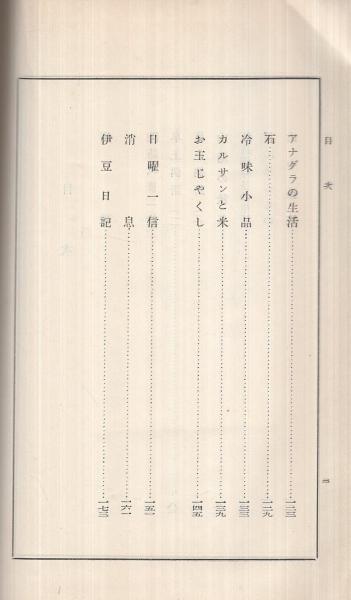 目次
アナグラの生活……一二三
石……一二九
冷味小品……一三三
カルサンと米……一三九
お玉じやくし……一四五
日曜一信……一五一
消息……一六一
伊豆日記……一七三